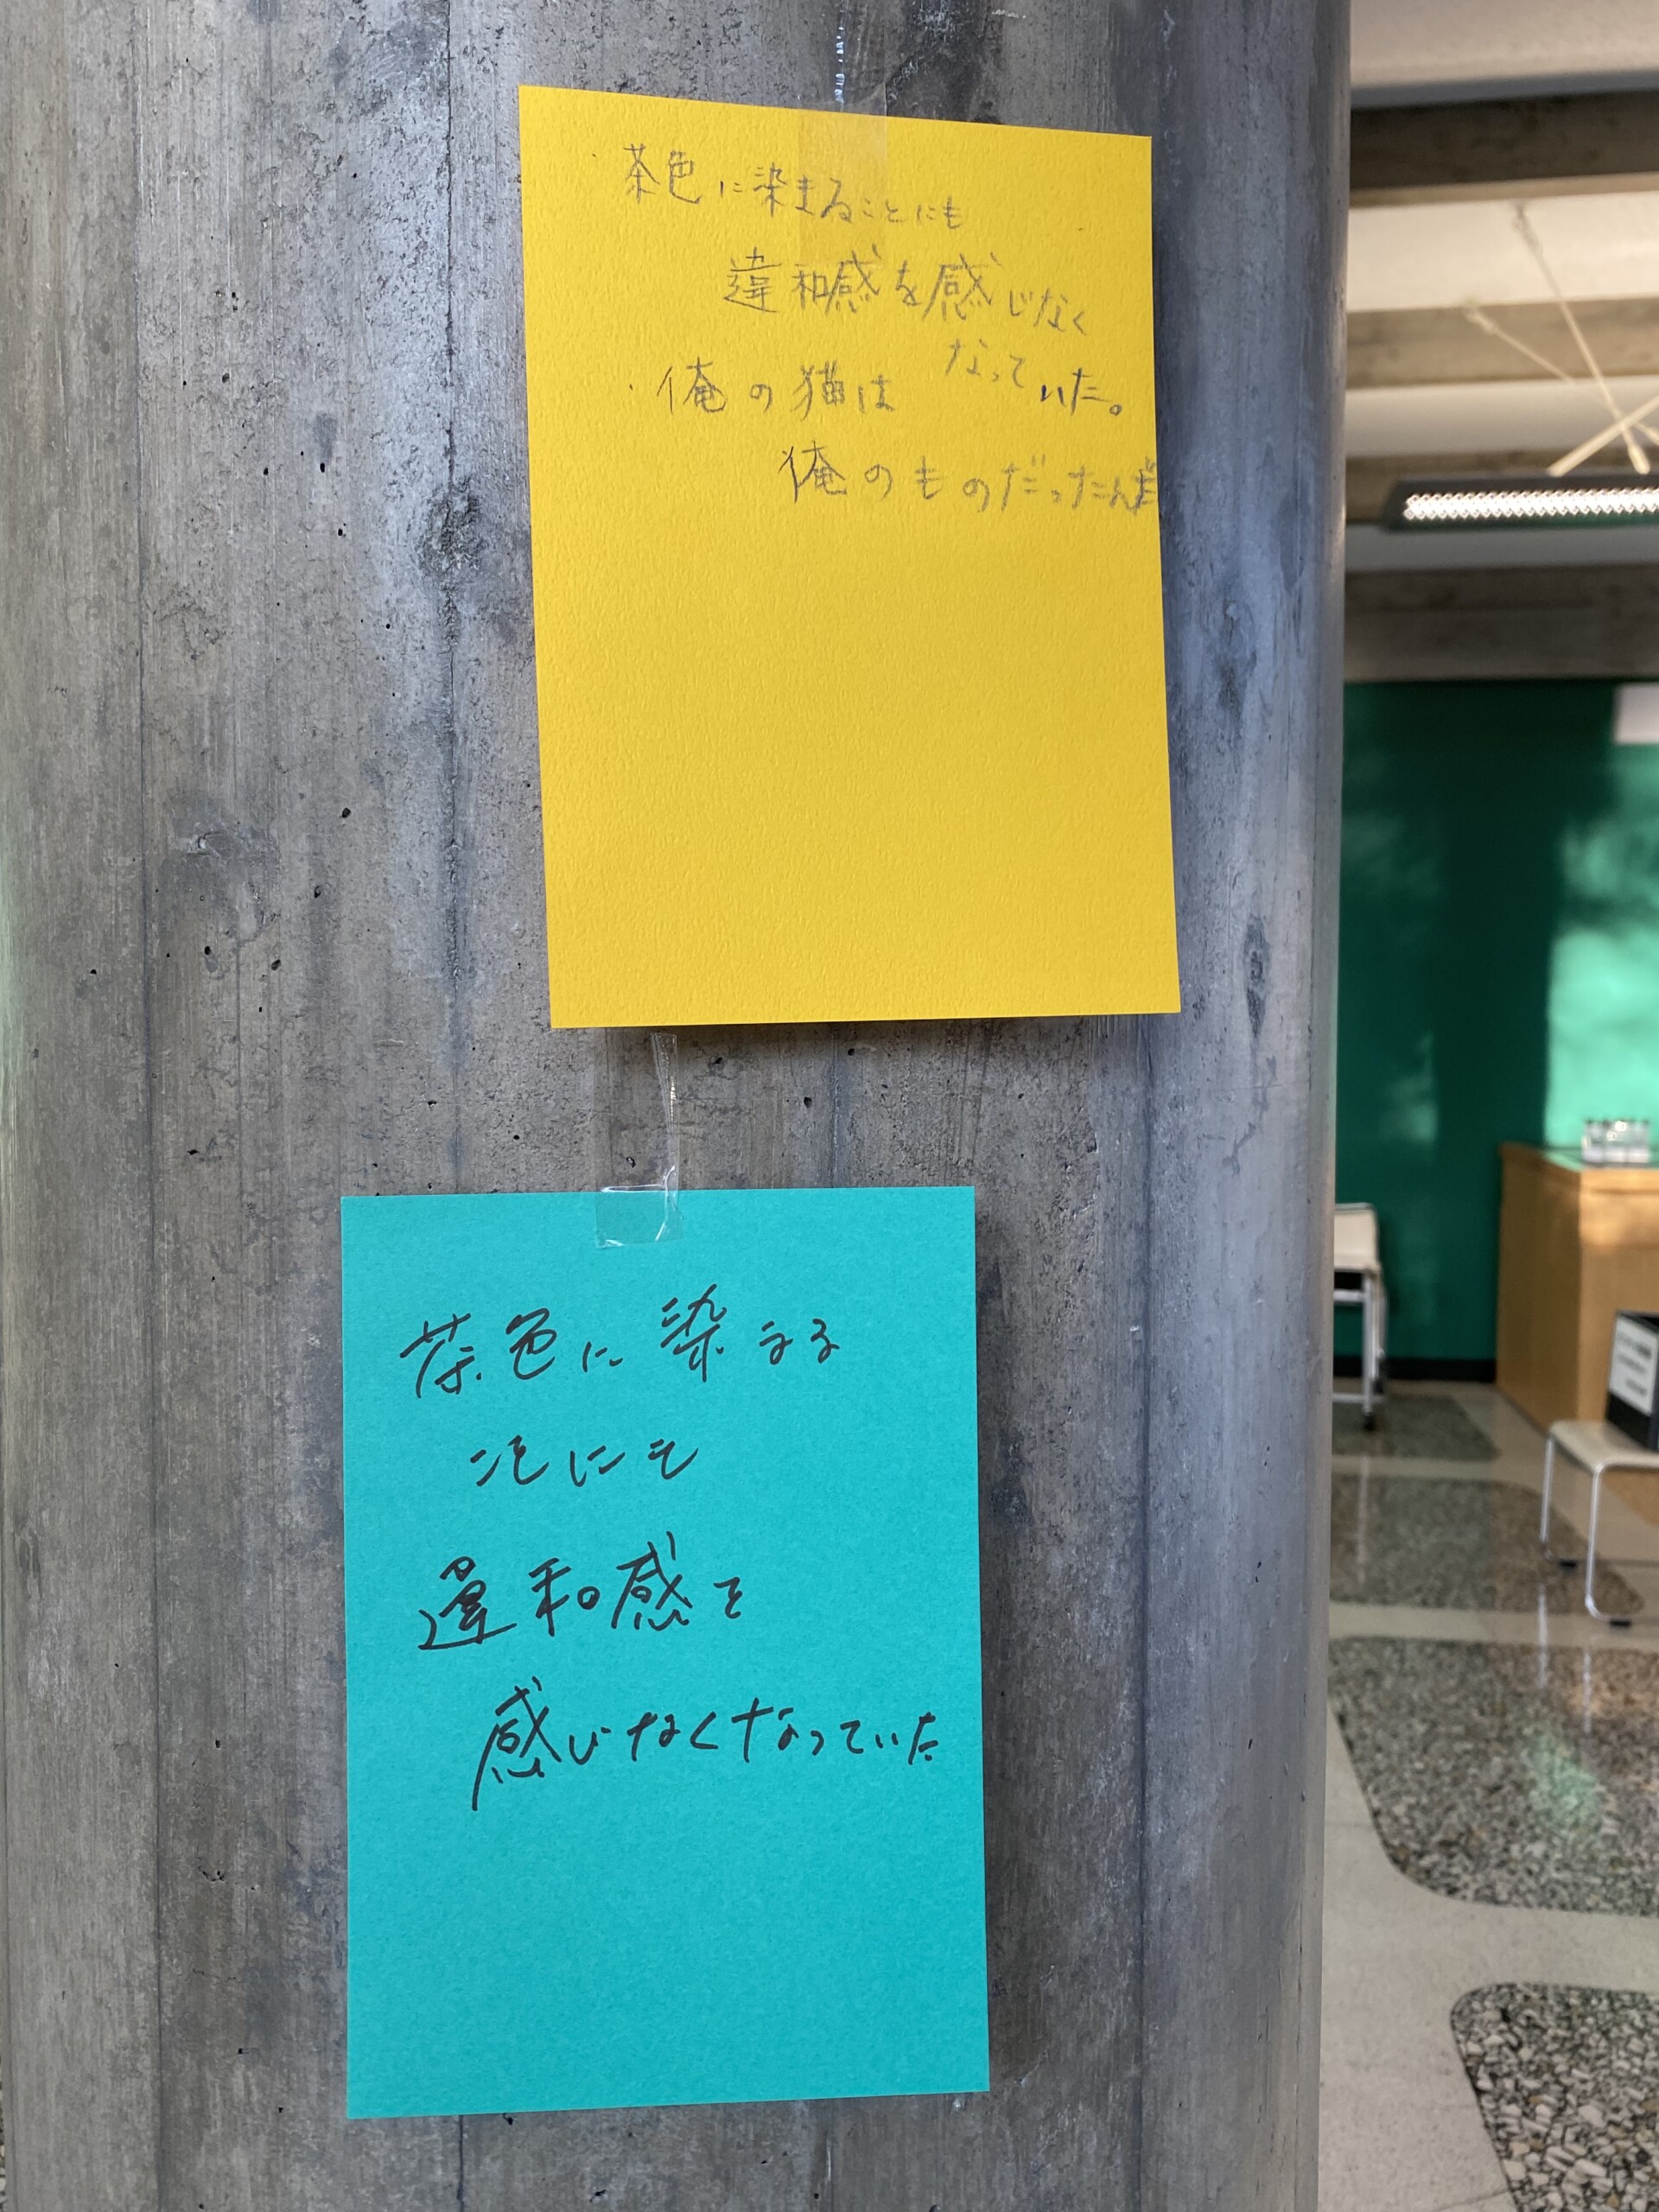 ・茶色に染まることにも
違和感を感じなく
なっていた。
・俺の猫は
俺のものだったんだ
茶色に染まる
ことにも
違和感を
感じなくなっていた